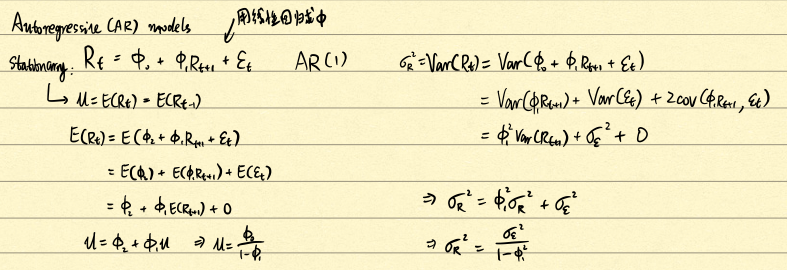 Autoregressive (AR) models
用线性回归求φ
Stationary: Rₜ = φ₀ + φ₁Rₜ₊₁ + εₜ AR(1)
↳ μ = E(Rₜ) = E(Rₜ₋₁)
E(Rₜ) = E(φ₂ + φ₁Rₜ₊₁ + εₜ)
= E(φ₂) + E(φ₁Rₜ₊₁) + E(εₜ)
= φ₂ + φ₁E(Rₜ₊₁) + 0
μ = φ₂ + φ₁μ ⇒ μ = φ₀/(1-φ₁)
σ_R² = Var(Rₜ) = Var(φ₀ + φ₁Rₜ₊₁ + εₜ)
= Var(φ₁Rₜ₊₁) + Var(εₜ) + 2cov(φ₁Rₜ₊₁, εₜ)
= φ₁² Var(Rₜ₊₁) + σ_ε² + 0
⇒ σ_R² = φ₁²σ_R² + σ_ε²
⇒ σ_R² = σ_ε²/(1-φ₁²)